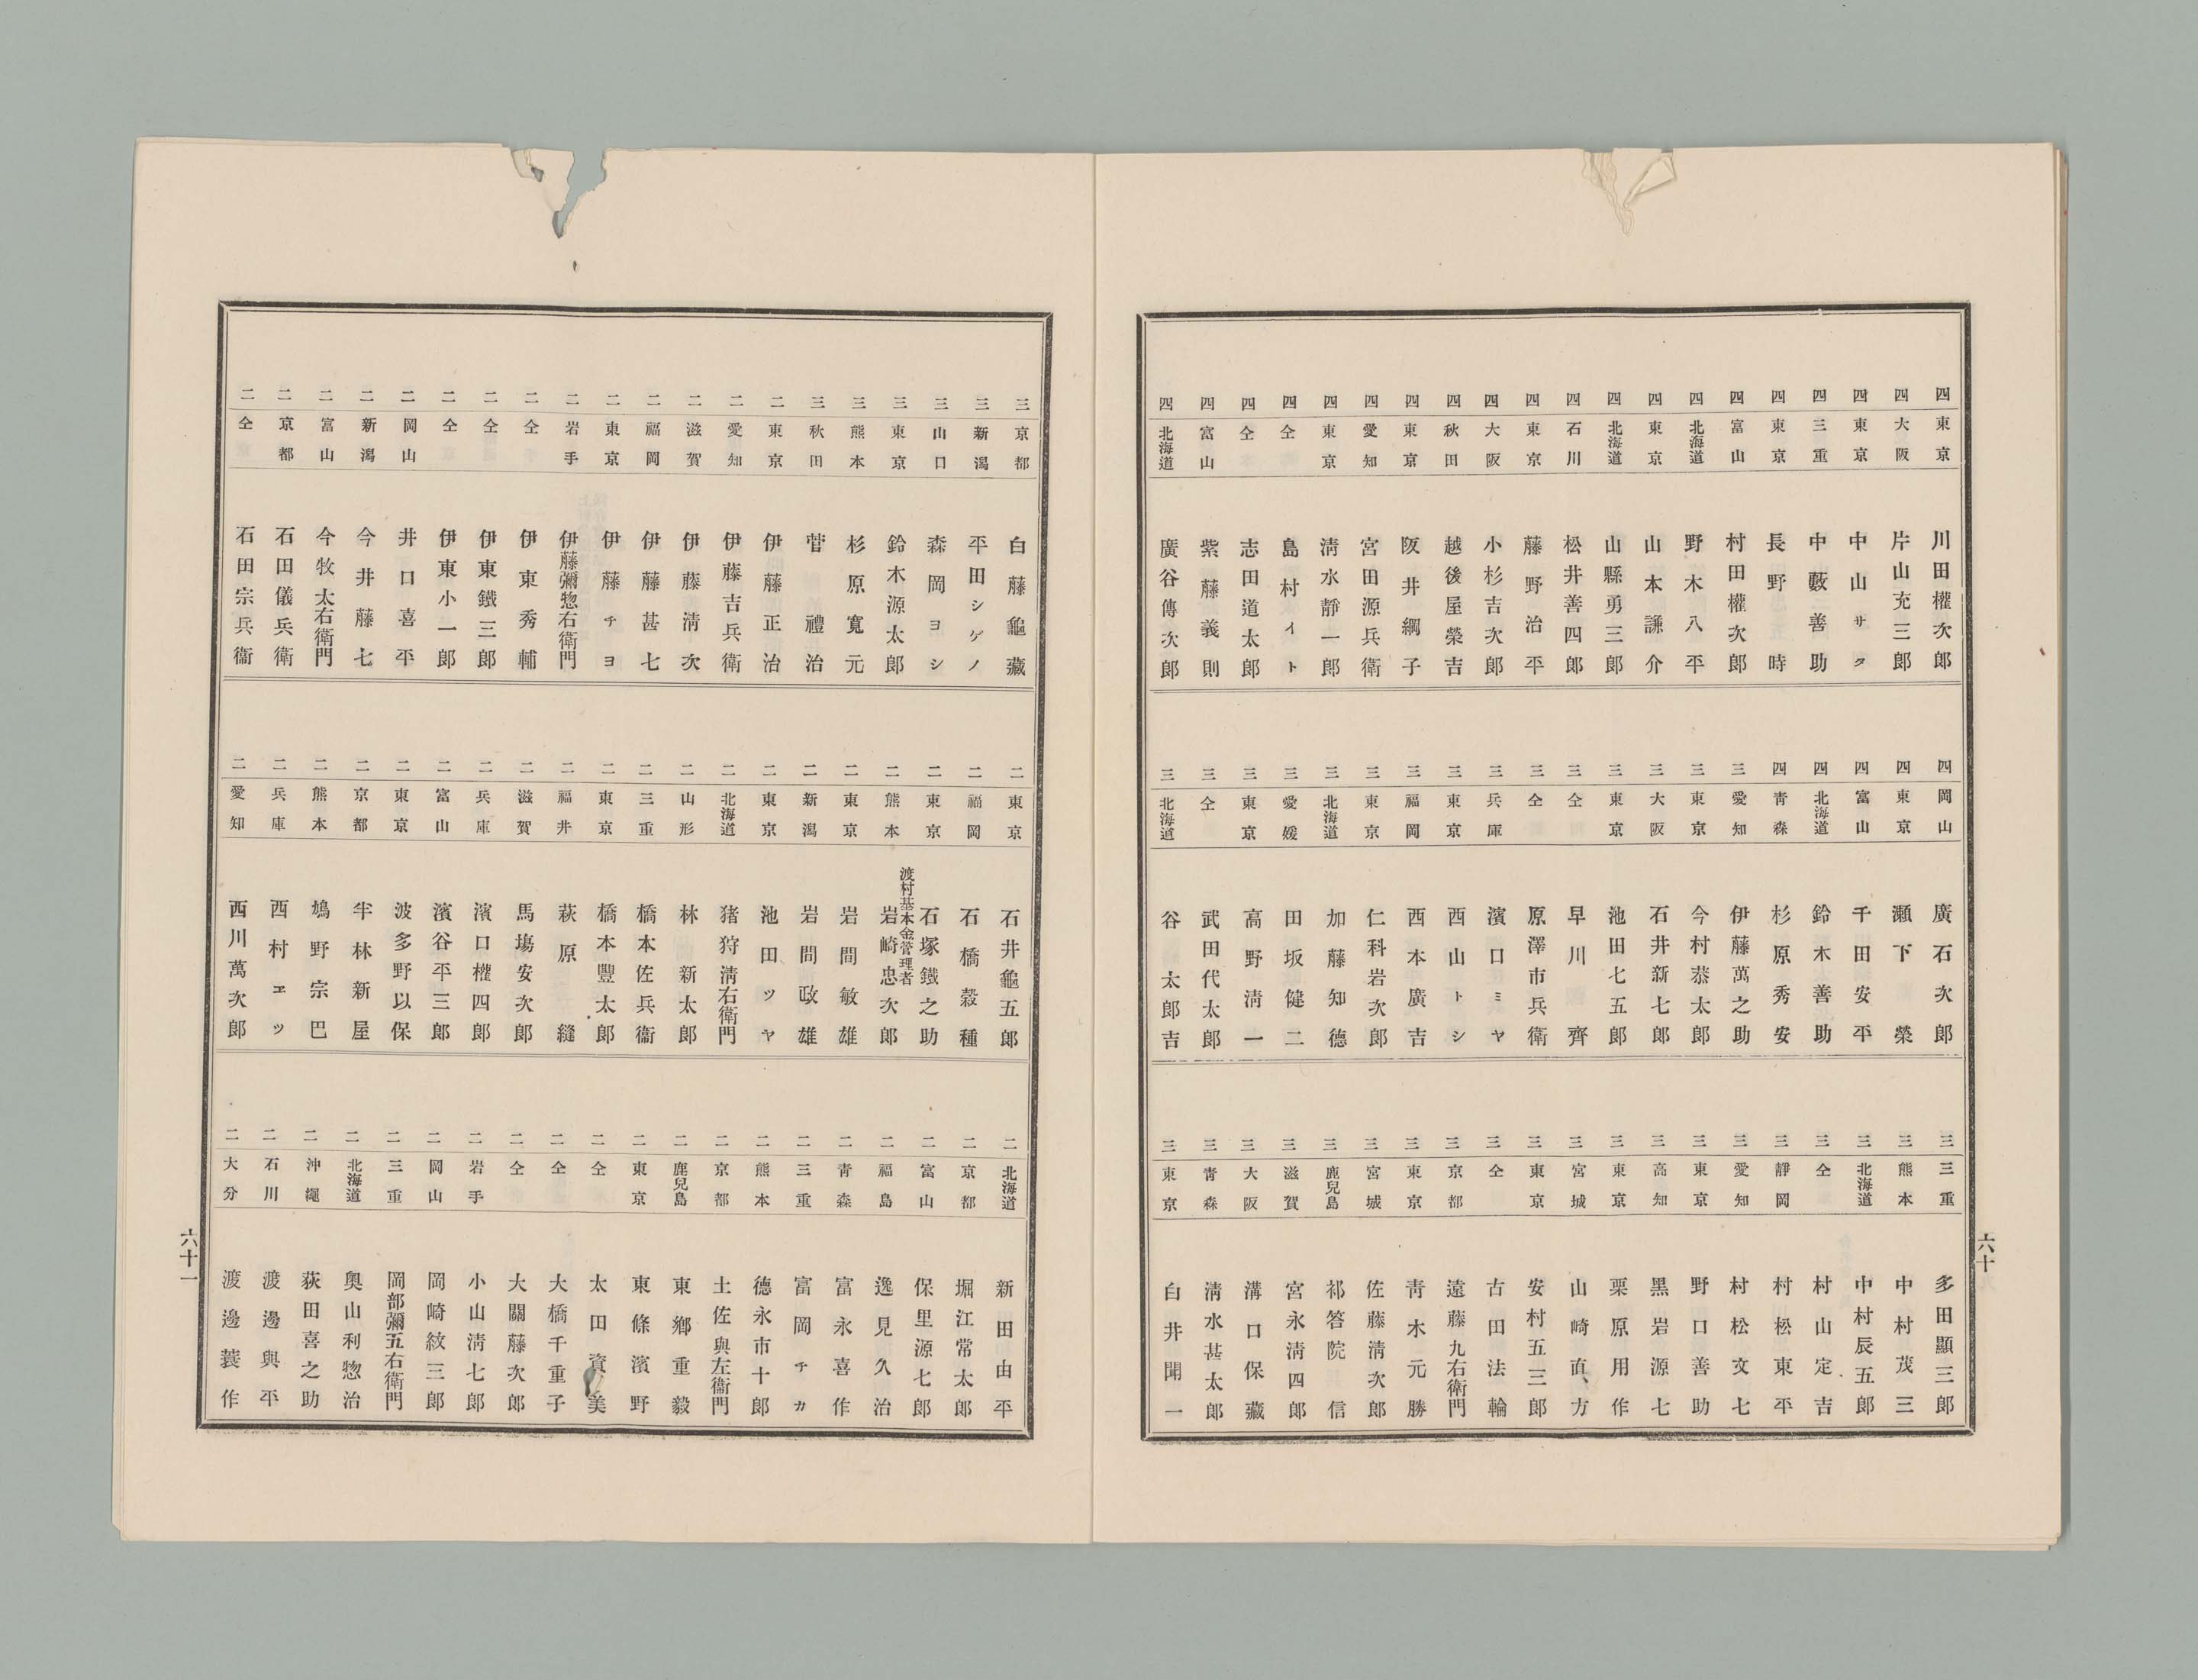 四 東京 川田權次郎
四 大阪 片山充三郎
四 東京 中山サク
四 三重 中藪善助
四 東京 長野時
四 富山 村田權次郎
四 北海道 野木八平
四 東京 山本謙介
四 北海道 山縣勇三郎
四 石川 松井善四郎
四 東京 藤野治平
四 大阪 小杉吉次郎
四 秋田 越後屋榮吉
四 東京 阪井綱子
四 愛知 宮田源兵衛
四 東京 淸水靜一郎
四 仝 島村イト
四 仝 志田道太郎
四 富山 紫藤義則
四 北海道 廣谷傳次郎
四 岡山 廣石次郎
四 東京 瀬下榮
四 富山 千田安平
四 北海道 鈴木善助
四 靑森 杉原秀安
三 愛知 伊藤萬之助
三 東京 今村恭太郎
三 大阪 石井新七郎
三 東京 池田七五郎
三 仝 早川齊
三 仝 原澤市兵衛
三 兵庫 濱口ミヤ
三 東京 西山トシ
三 福岡 西本廣吉
三 東京 仁科岩次郎
三 北海道 加藤知德
三 愛媛 田坂健二
三 東京 高野淸一
三 仝 武田代太郎
三 北海道 谷太郎吉
三 三重 多田顯三郎
三 熊本 中村茂三
三 北海道 中村辰五郎
三 仝 村山定吉
三 靜岡 村松東平
三 愛知 村松文七
三 東京 野口善助
三 高知 黑岩源七
三 東京 栗原用作
三 宮城 山崎直方
三 東京 安村五三郎
三 仝 古田法輪
三 京都 遠藤九右衛門
三 東京 靑木元勝
三 宮城 佐藤淸次郎
三 鹿兒島 祁答院信
三 滋賀 宮永淸四郎
三 大阪 溝口保藏
三 靑森 淸水甚太郎
三 東京 白井聞一
六十
三 京都 白藤龜藏
三 新潟 平田シゲノ
三 山口 森岡ヨシ
三 東京 鈴木源太郎
三 熊本 杉原寬元
三 秋田 菅禮治
二 東京 伊藤正治
二 愛知 伊藤吉兵衛
二 滋賀 伊藤淸次
二 福岡 伊藤甚七
二 東京 伊藤チヨ
二 岩手 伊藤彌惣右衛門
二 仝 伊東秀輔
二 仝 伊東鐵三郎
二 仝 伊東小一郎
二 岡山 井口喜平
二 新潟 今井藤七
二 富山 今牧太右衛門
二 京都 石田儀兵衛
二 仝 石田宗兵衞
二 東京 石井龜五郎
二 福岡 石橋穀種
二 東京 石塚鐵之助
二 熊本 渡村基本金管理者 岩崎忠次郎
二 東京 岩間敏雄
二 新潟 岩間政雄
二 東京 池田ツヤ
二 北海道 猪狩淸右衛門
二 山形 林新太郎
二 三重 橋本佐兵衞
二 東京 橋本豐太郎
二 福井 萩原縫
二 滋賀 馬塲安次郎
二 兵庫 濱口權四郎
二 富山 濱谷平三郎
二 東京 波多野以保
二 京都 半林新屋
二 熊本 鳩野宗巴
二 兵庫 西村ヱツ
二 愛知 西川萬次郎
二 北海道 新田由平
二 京都 堀江常太郎
二 富山 保里源七郎
二 福島 逸見久治
二 靑森 富永喜作
二 三重 富岡チカ
二 熊本 德永市十郎
二 京都 土佐與左衞門
二 鹿兒島 東鄕重毅
二 東京 東條濱野
二 仝 太田資美
二 仝 大橋千重子
二 仝 大關藤次郎
二 岩手 小山淸七郎
二 岡山 岡崎紋三郎
二 三重 岡部彌五右衛門
二 北海道 奥山利惣治
二 沖繩 荻田喜之助
二 石川 渡邊與平
二 大分 渡邊蓑作
六十一